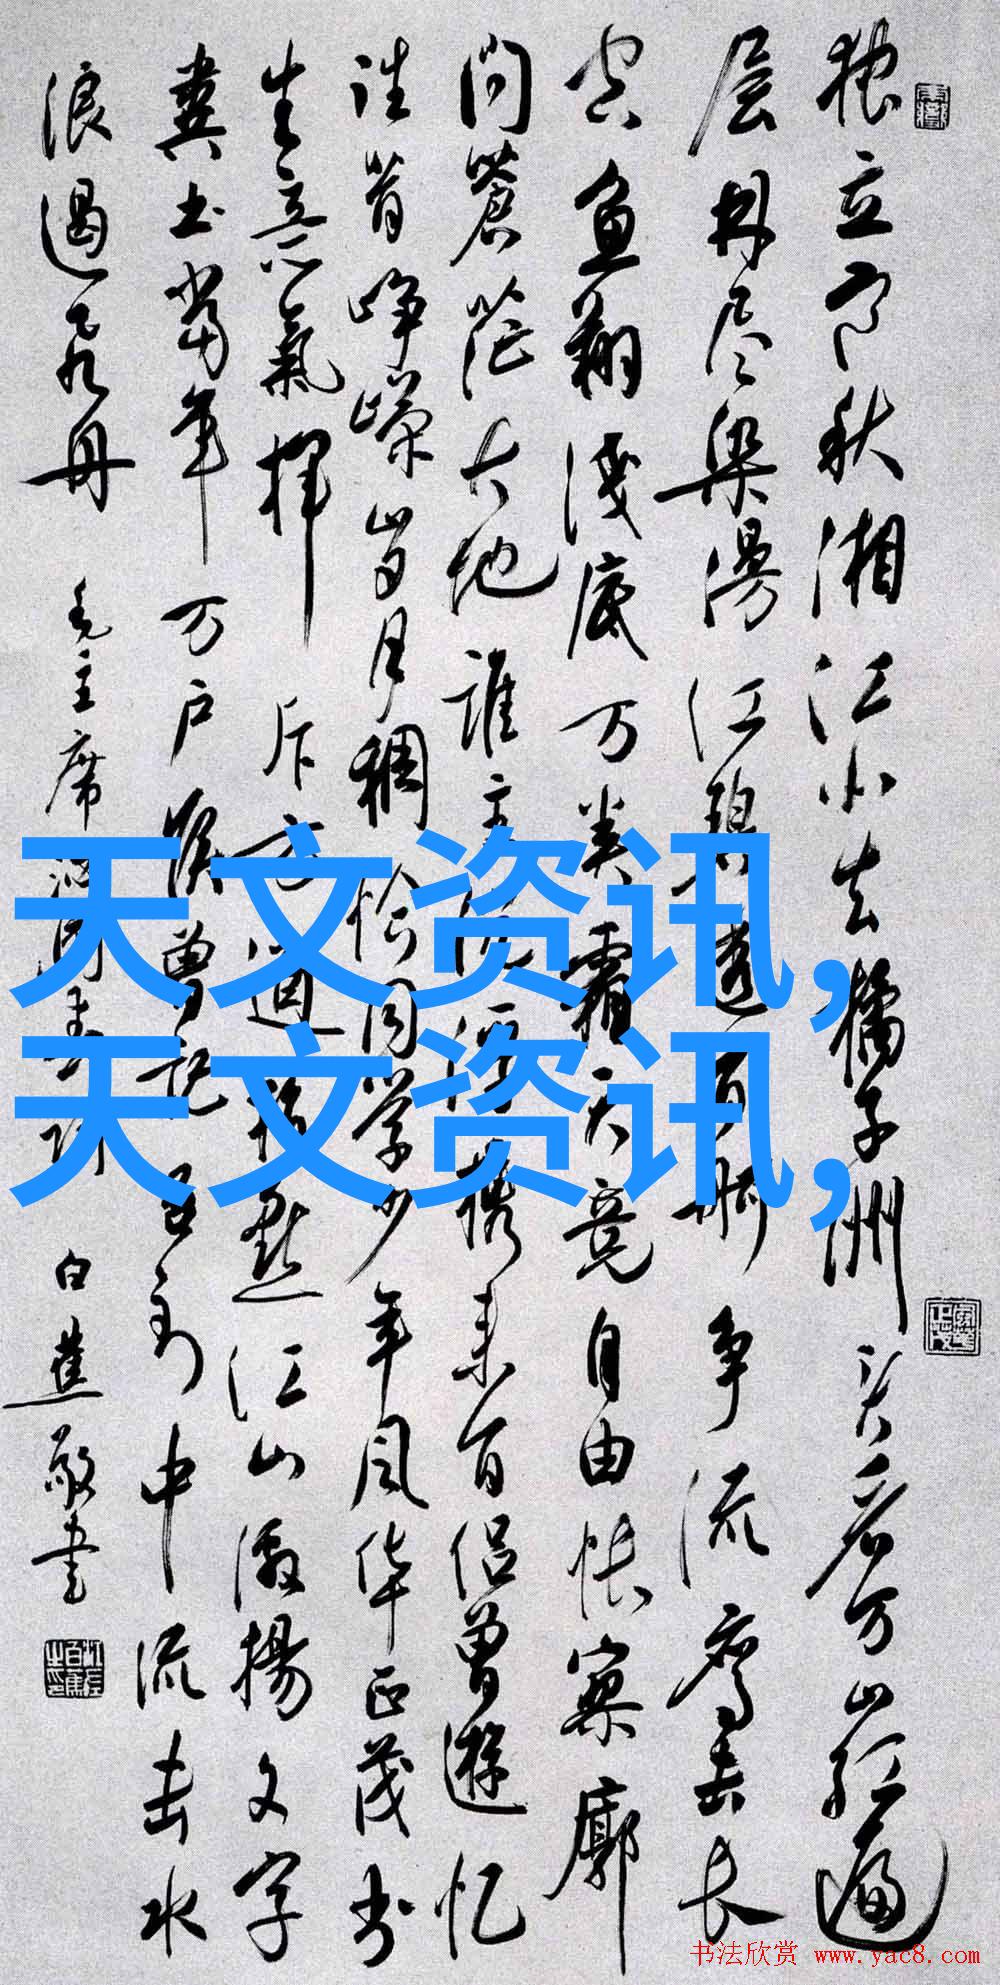 独立寒秋湘江北去橘子洲头看万山红遍
层林尽染漫江碧透百舸争流鹰击长
空鱼翔浅底万类霜天竞自由怅寥廓
问苍茫大地谁主沉浮携来百侣曾游忆
往昔峥嵘岁月稠恰同学少年风华正茂书
生意气挥斥方遒指点江山激扬文字
粪土当年万户侯曾记否到中流击水
浪遏飞舟
毛主席
白蕉敬书
天文资讯,
天文资讯,
书法欣赏 www.yac8.com